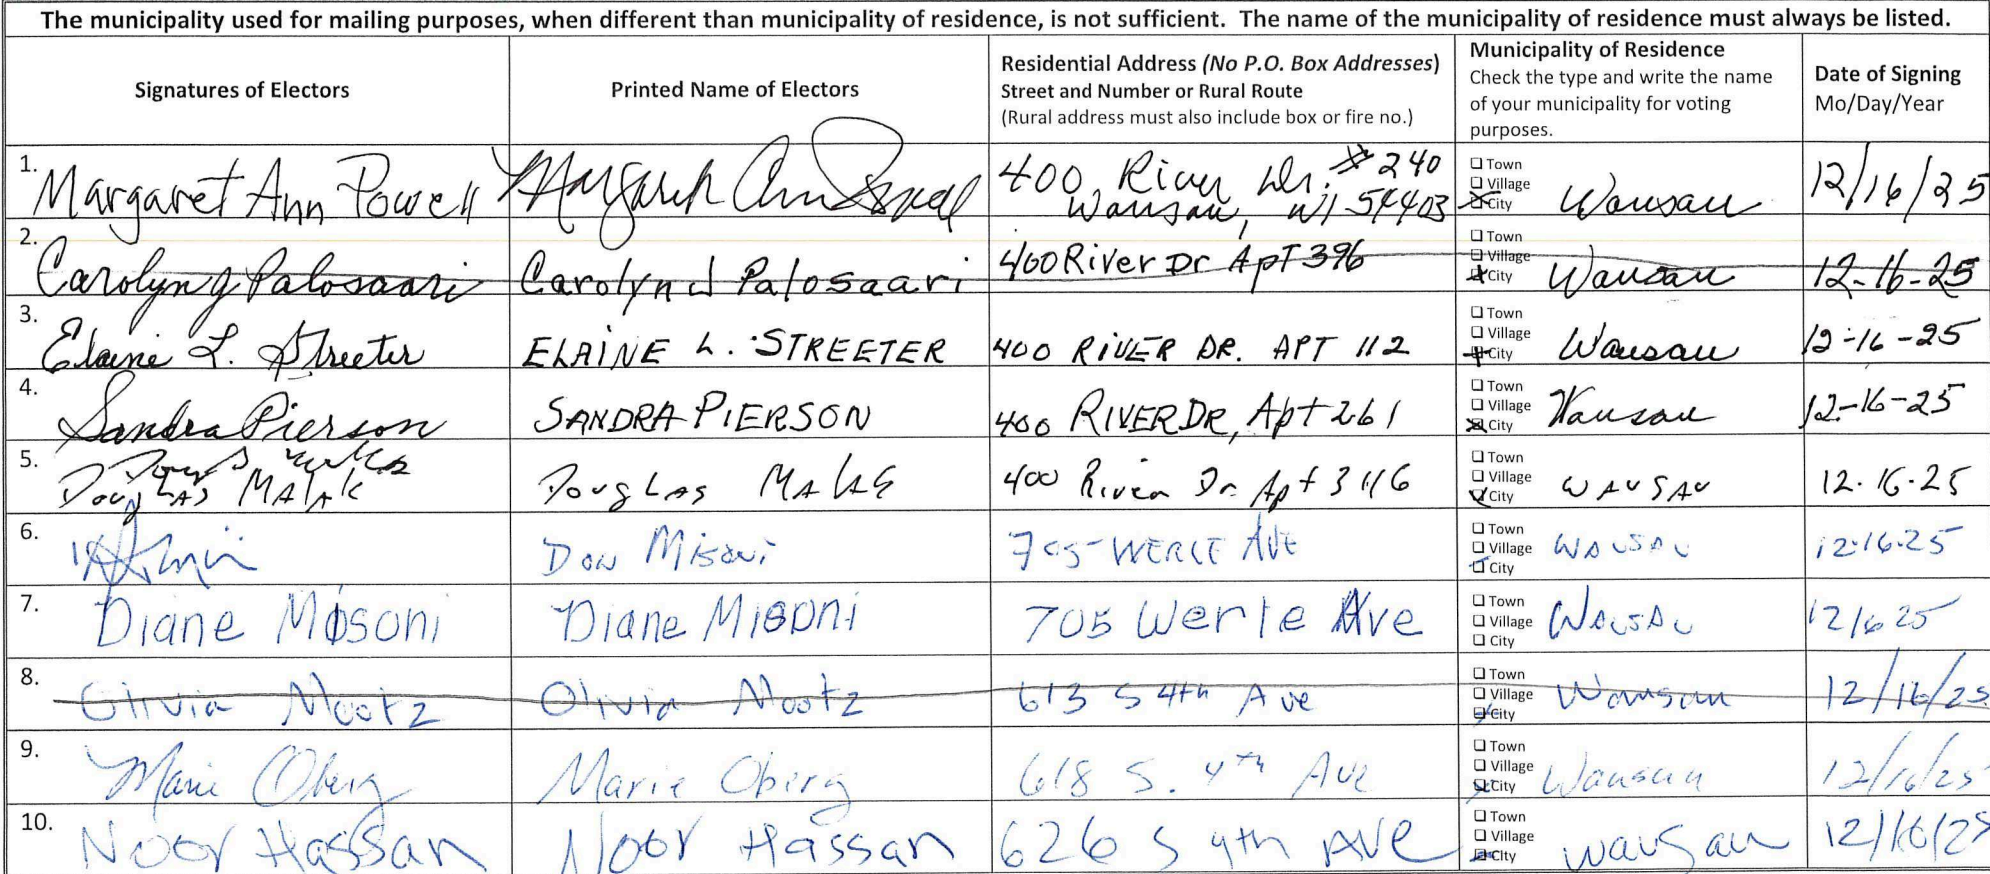 The municipality used for mailing purposes, when different than municipality of residence, is not sufficient. The name of the municipality of residence must always be listed.
Signatures of Electors
Printed Name of Electors
Residential Address (No P.O. Box Addresses)
Street and Number or Rural Route
(Rural address must also include box or fire no.)
Municipality of Residence
Check the type and write the name
of your municipality for voting
purposes.
Date of Signing
Mo/Day/Year
1. Margaret Ann Powell Margaret Ann Powell 400 River Dr. #240
Wausau, WI 54403
Town
Village
City Wausau 12/16/25
2. Carolyn J Palosaari Carolyn J Palosaari 400 River Dr Apt 396
Town
Village
City Wausau 12-16-25
3. Elaine L. Streeter ELAINE L. STREETER 400 RIVER DR. APT 112
Town
Village
City Wausau 12-16-25
4. Sandra Pierson SANDRA PIERSON 400 RIVER DR, Apt 261
Town
Village
City Wausau 12-16-25
5. Douglas MALAK Douglas 400 River Dr Apt
Town
Village
City WAUSAU 12.16.25
6. Don Misoni 705 WERLE AVE
Town
Village
City WAUSAU 12.16.25
7. Diane Misoni Diane MISONI 705 Werle Ave
Town
Village
City WAUSAU
8. Olivia Mootz Olivia Mootz 613 S 4th Ave
Town
Village
City Wausau 12/16/25
9. Marie Oberg Marie Oberg 618 S. 4th Ave
Town
Village
City Wausau 12/16/25
10. Noor Hassan Noor Hassan 626 S 4th AVE
Town
Village
City wausau 12/16/25